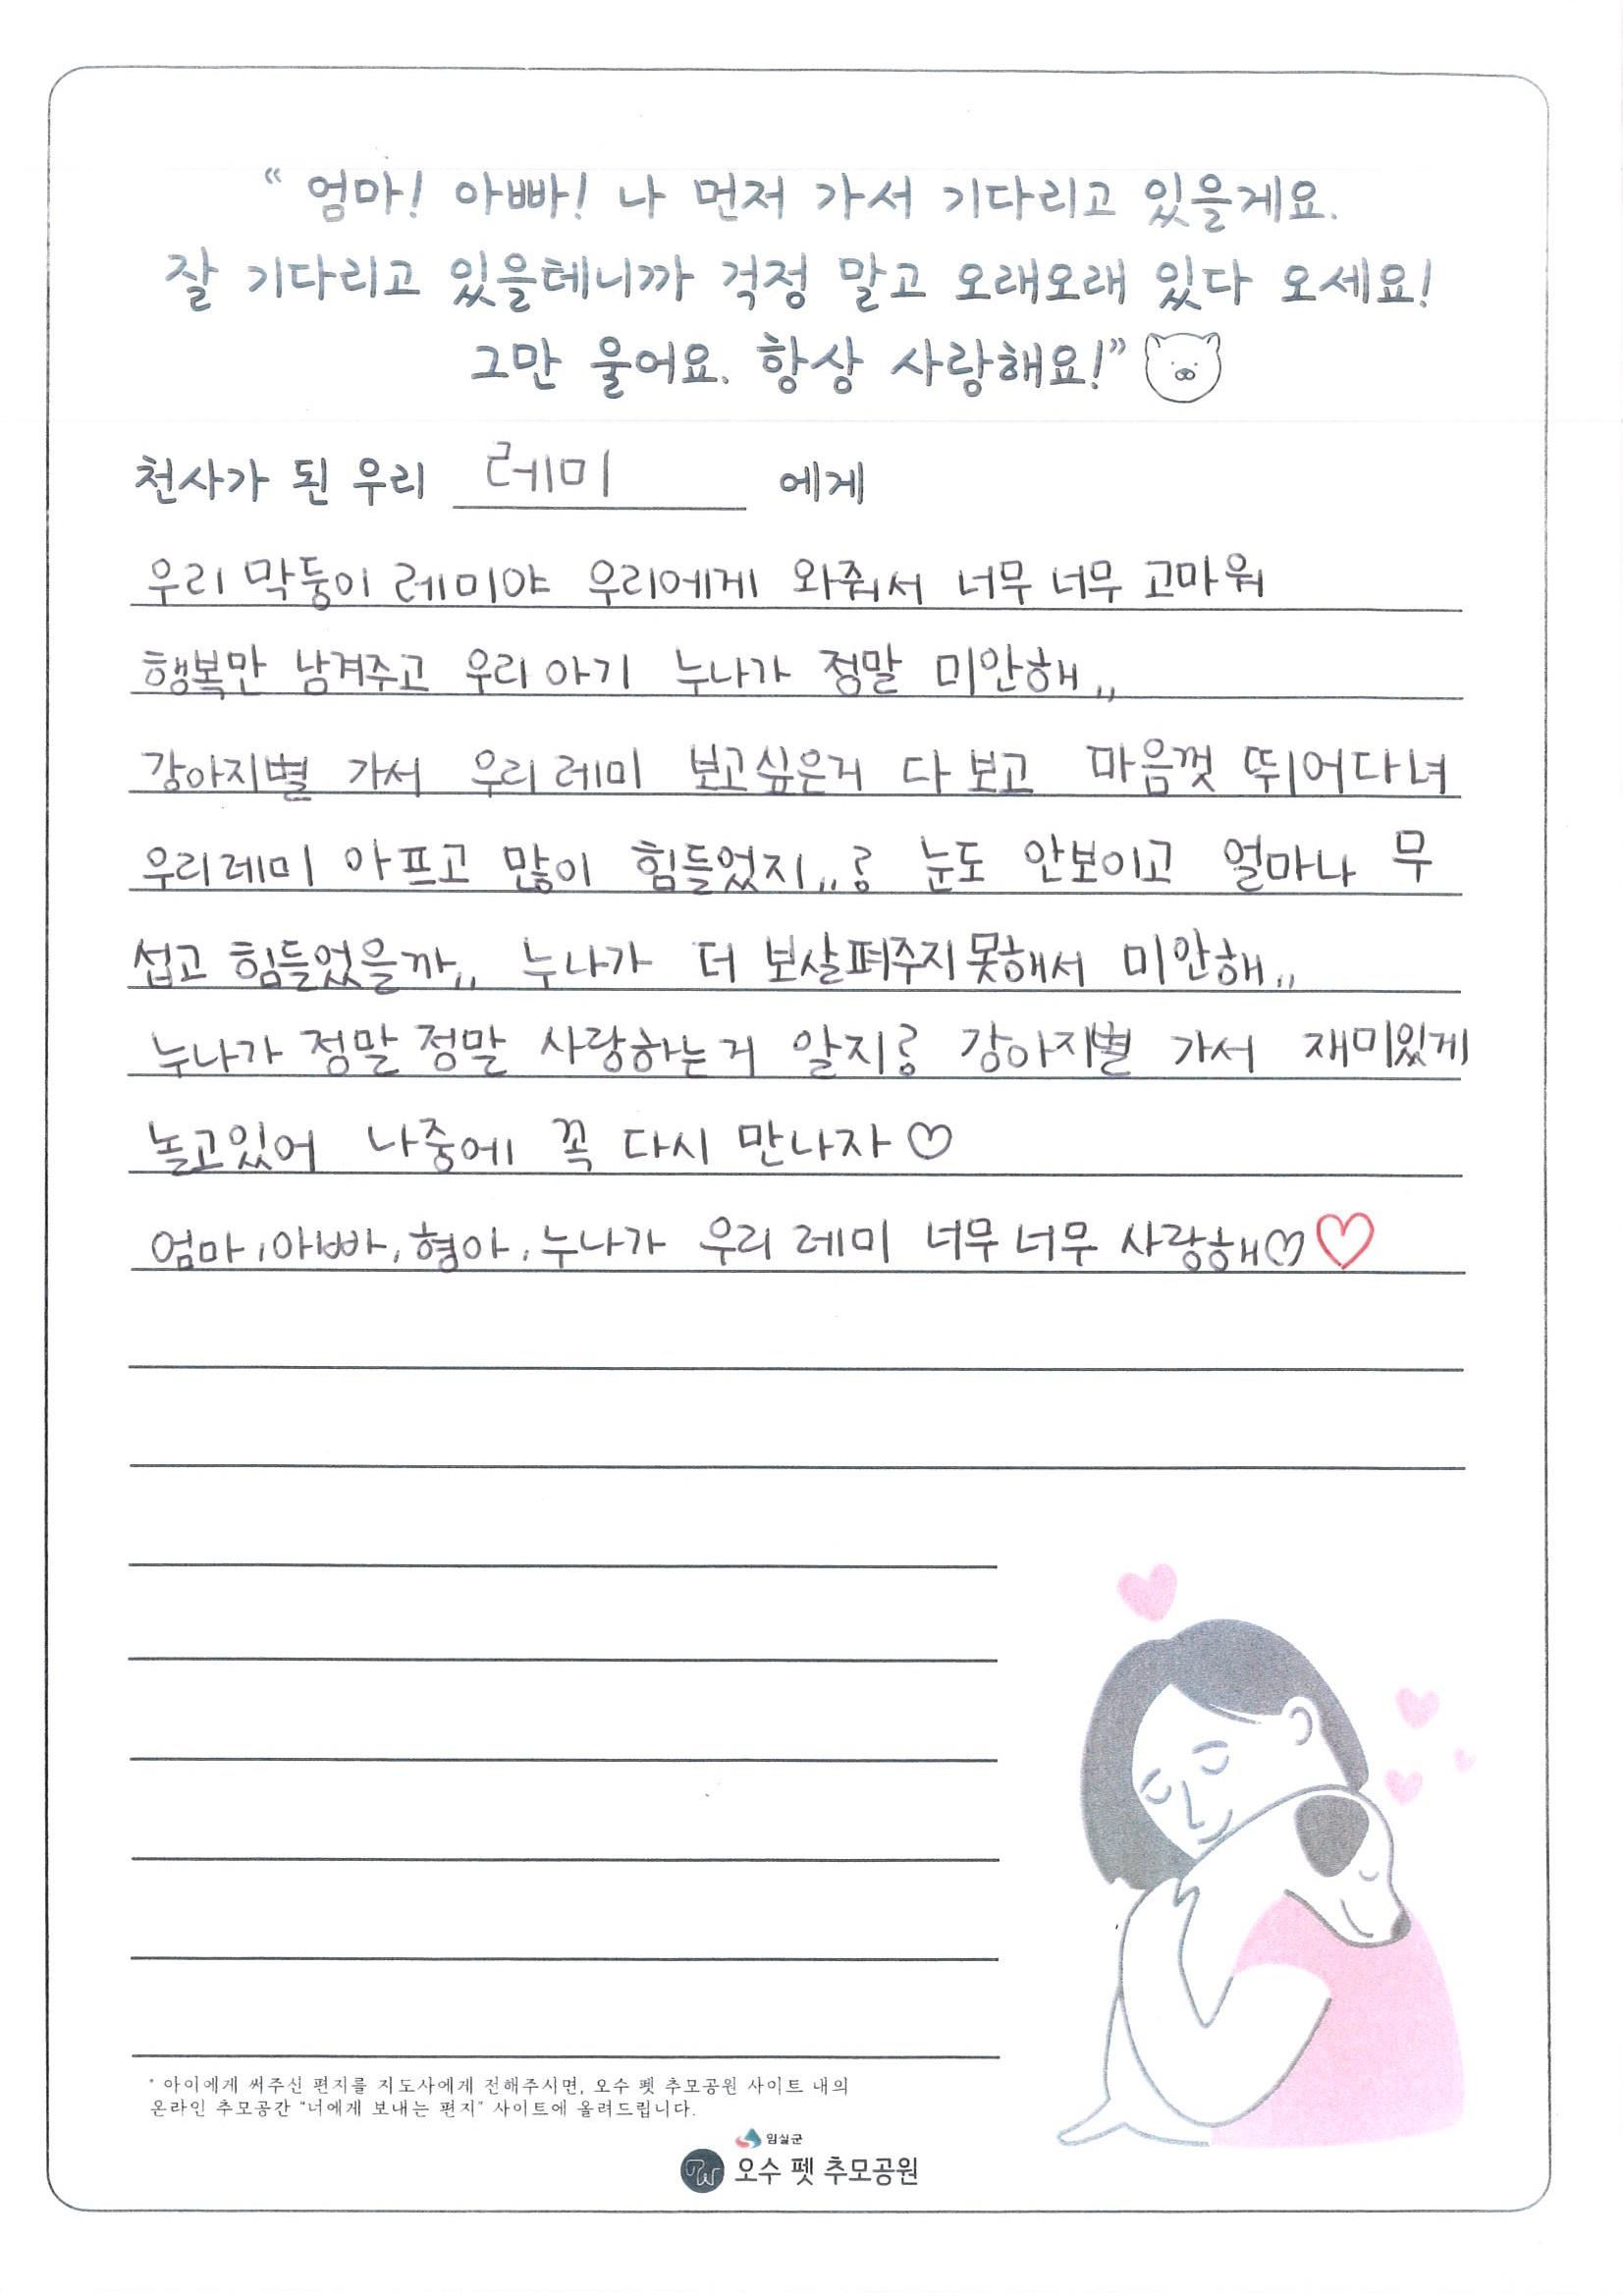 “ 엄마! 아빠! 나 먼저 가서 기다리고 있을게요.
잘 기다리고 있을테니까 걱정 말고 오래오래 있다 오세요!
그만 울어요. 항상 사랑해요!”
천사가 된 우리 레미 에게
우리 막둥이 레미야 우리에게 와줘서 너무 너무 고마워
행복만 남겨주고 우리 아기 누나가 정말 미안해,,
강아지별 가서 우리 레미 보고싶은거 다 보고 마음껏 뛰어다녀
우리레미 아프고 많이 힘들었지,,? 눈도 안보이고 얼마나 무
섭고 힘들었을까,, 누나가 더 보살펴주지못해서 미안해,,
누나가 정말 정말 사랑하는거 알지? 강아지별 가서 재미있게
놀고있어 나중에 꼭 다시 만나자♡
엄마,아빠,형아,누나가 우리 레미 너무 너무 사랑해♡♡
* 아이에게 써주신 편지를 지도사에게 전해주시면, 오수 펫 추모공원 사이트 내의
온라인 추모공간 “너에게 보내는 편지” 사이트에 올려드립니다.
임실군
오수 펫 추모공원